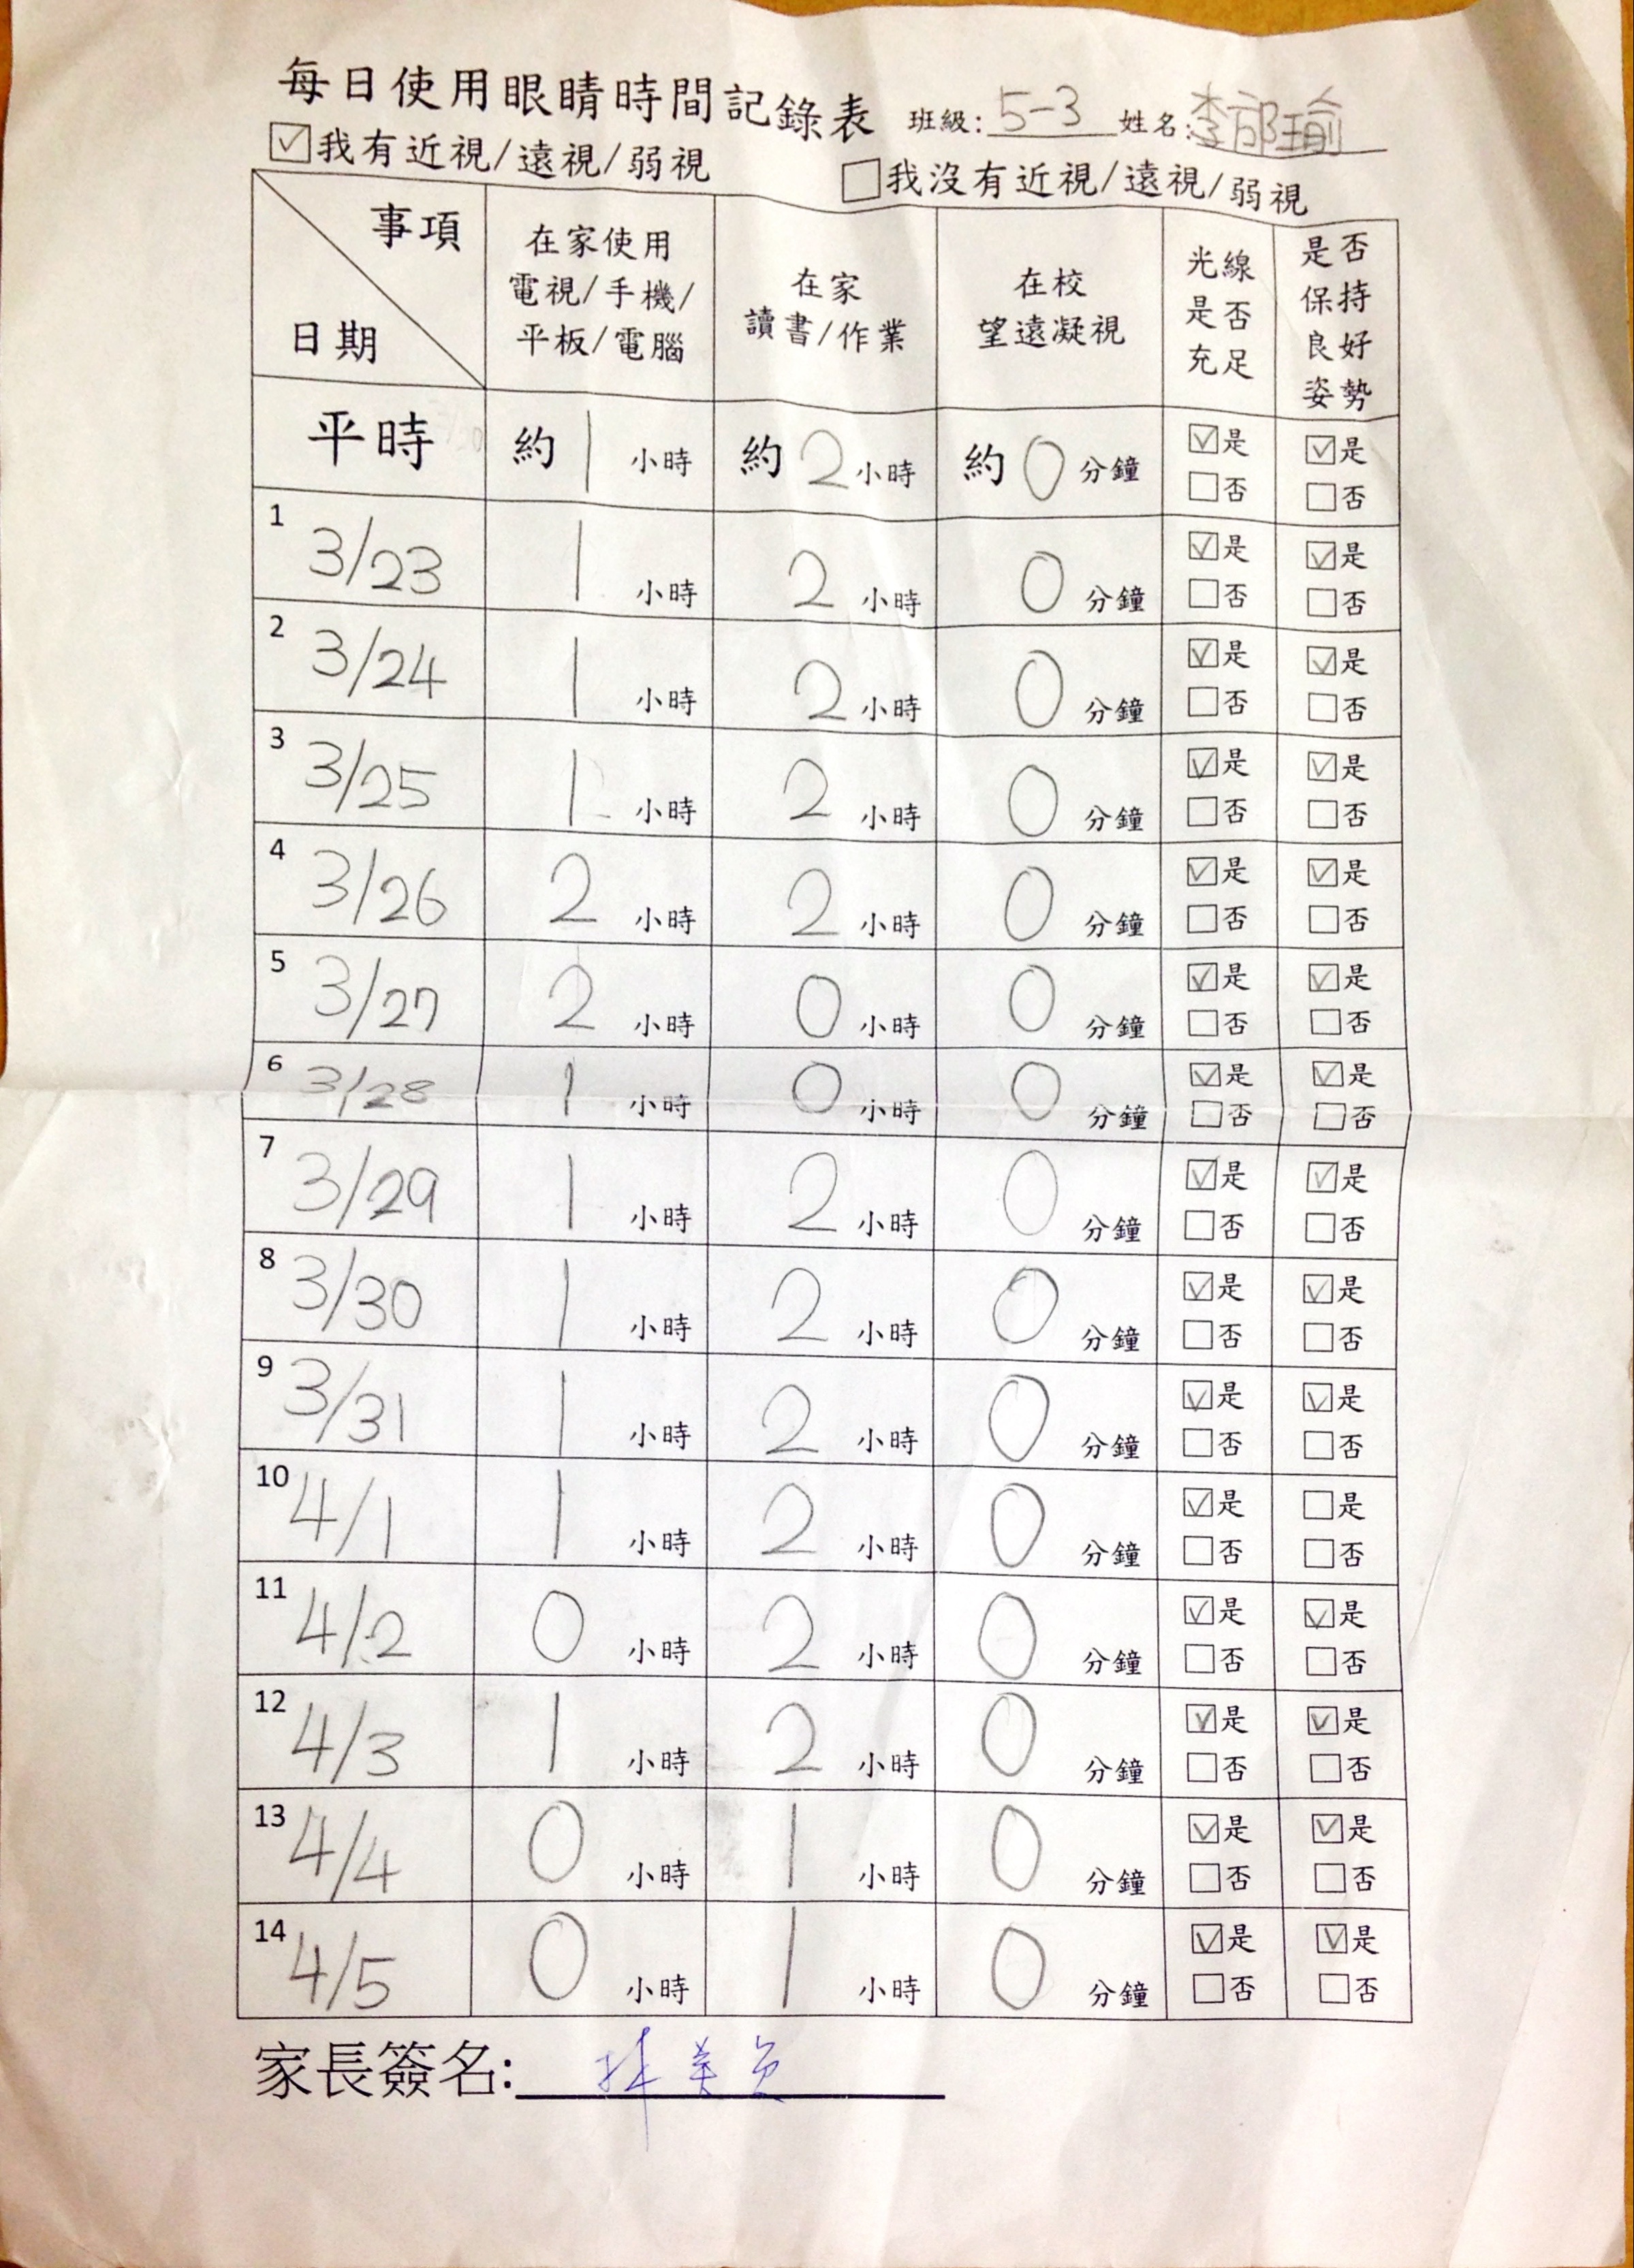 每日使用眼睛時間記錄表 班級:5-3 姓名:李郁瑜
☑我有近視/遠視/弱視 ☐我沒有近視/遠視/弱視
事項 日期 在家使用電視/手機/平板/電腦 在家讀書/作業 在校望遠凝視 光線是否充足 是否保持良好姿勢
平時 約1小時 約2小時 約0分鐘 ☑是 ☐否 ☑是 ☐否
1 3/23 1小時 2小時 0分鐘 ☑是 ☐否 ☑是 ☐否
2 3/24 1小時 2小時 0分鐘 ☑是 ☐否 ☑是 ☐否
3 3/25 1小時 2小時 0分鐘 ☑是 ☐否 ☑是 ☐否
4 3/26 2小時 2小時 0分鐘 ☑是 ☐否 ☑是 ☐否
5 3/27 2小時 0小時 0分鐘 ☑是 ☐否 ☑是 ☐否
6 3/28 1小時 0小時 0分鐘 ☑是 ☐否 ☑是 ☐否
7 3/29 1小時 2小時 0分鐘 ☑是 ☐否 ☑是 ☐否
8 3/30 1小時 2小時 0分鐘 ☑是 ☐否 ☑是 ☐否
9 3/31 1小時 2小時 0分鐘 ☑是 ☐否 ☑是 ☐否
10 4/1 1小時 2小時 0分鐘 ☑是 ☐否 ☐是 ☐否
11 4/2 0小時 2小時 0分鐘 ☑是 ☐否 ☑是 ☐否
12 4/3 1小時 2小時 0分鐘 ☑是 ☐否 ☑是 ☐否
13 4/4 0小時 1小時 0分鐘 ☑是 ☐否 ☑是 ☐否
14 4/5 0小時 1小時 0分鐘 ☑是 ☐否 ☑是 ☐否
家長簽名: